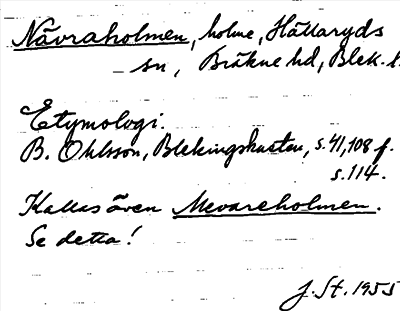 Nävraholmen, holme, Hällaryds
sn, Bräkne hd, Blek. l.
Etymologi.
B. Ohlsson, Blekingskusten, s. 41, 108 f.
s. 114.
Kallas även Mevareholmen.
Se detta!
J. St. 1955